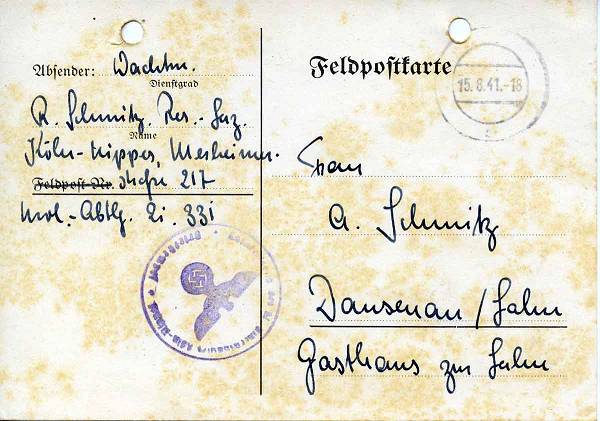 Absender: Wachtm.
Dienstgrad
R. Schmitz, Res.-Laz.
Name
Köln-Nippes, Merheimer-
Feldpost-Nr. straße 217
Abtlg. Zi. 331
Feldpostkarte
15.8.41.-18
Frau
A. Schmitz
Dausenau / Lahn
Gasthaus zur Lahn